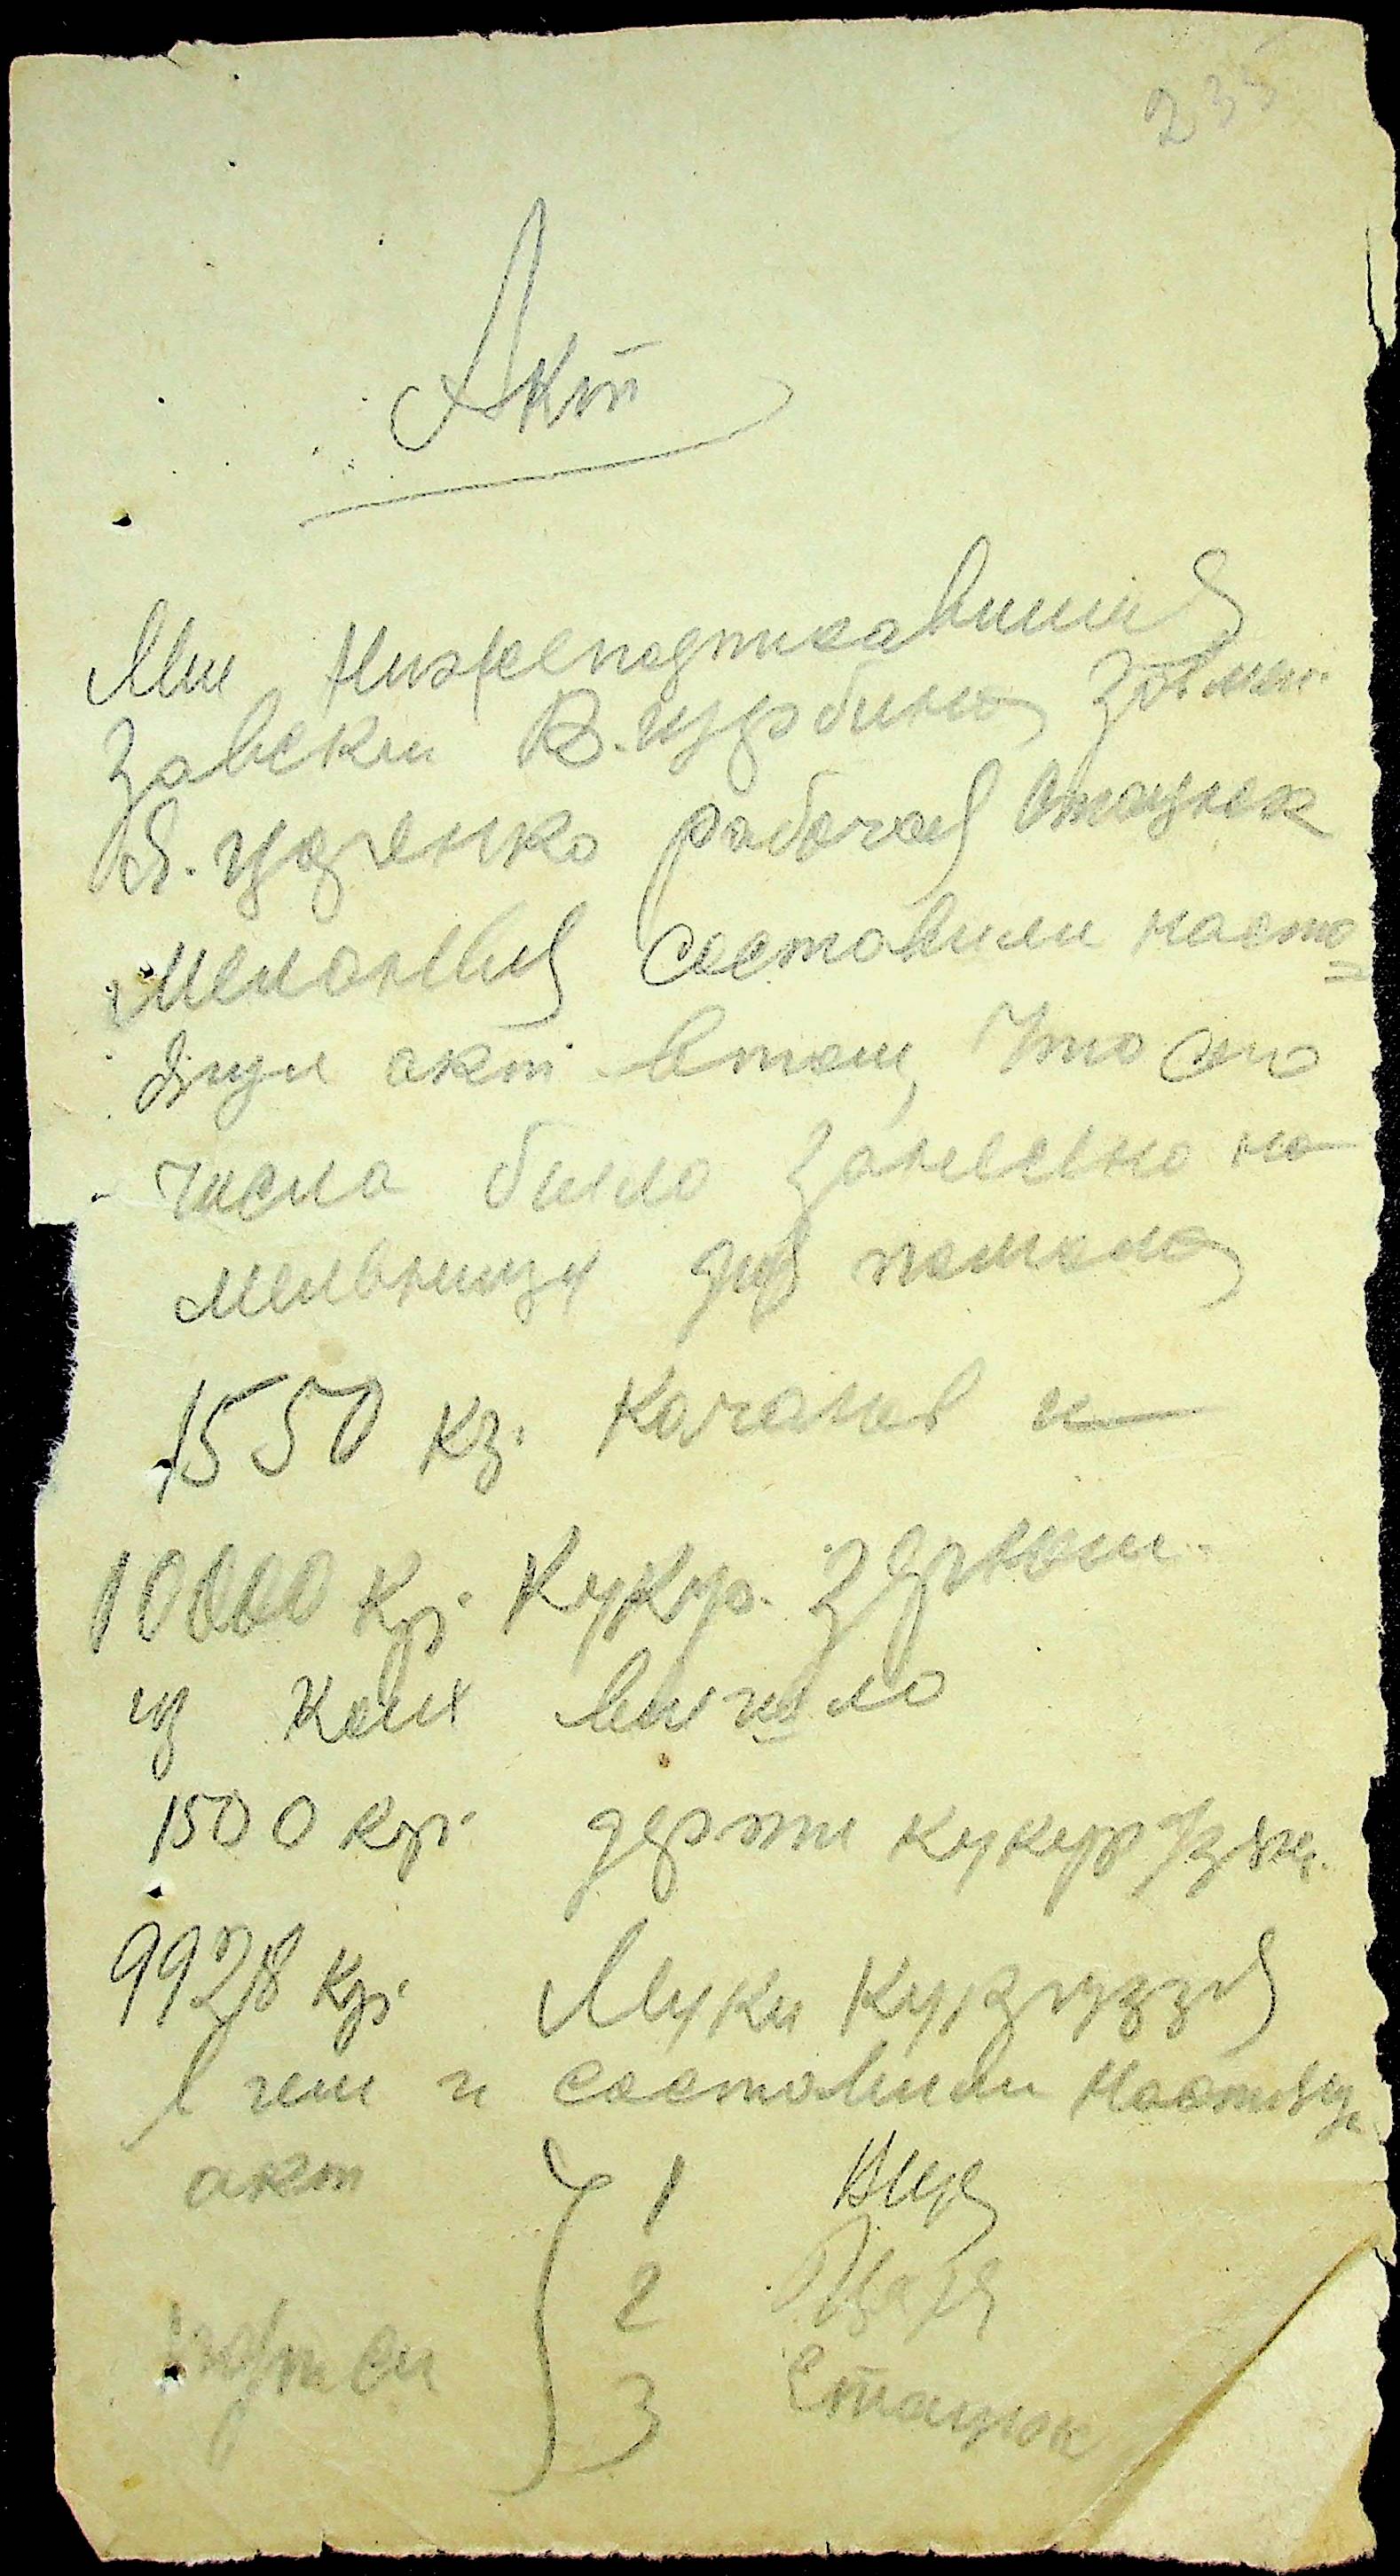 235
Акт
Мы нижеподписавшиеся
завскл В. Щербина зав мел.
Я. Цаценко рабочая Стацюк
Мелания составили насто
ящи акт в том, что сего
числа было занесено на
мельницу для помола
1550 кг. качанов и
10000 кг. кукур. зерном
из коих вышло
1500 кг. дерти кукурузян.
9928 кг. Муки
в чем и составили настояще
акт
подписи
1
2
3 Стацюк